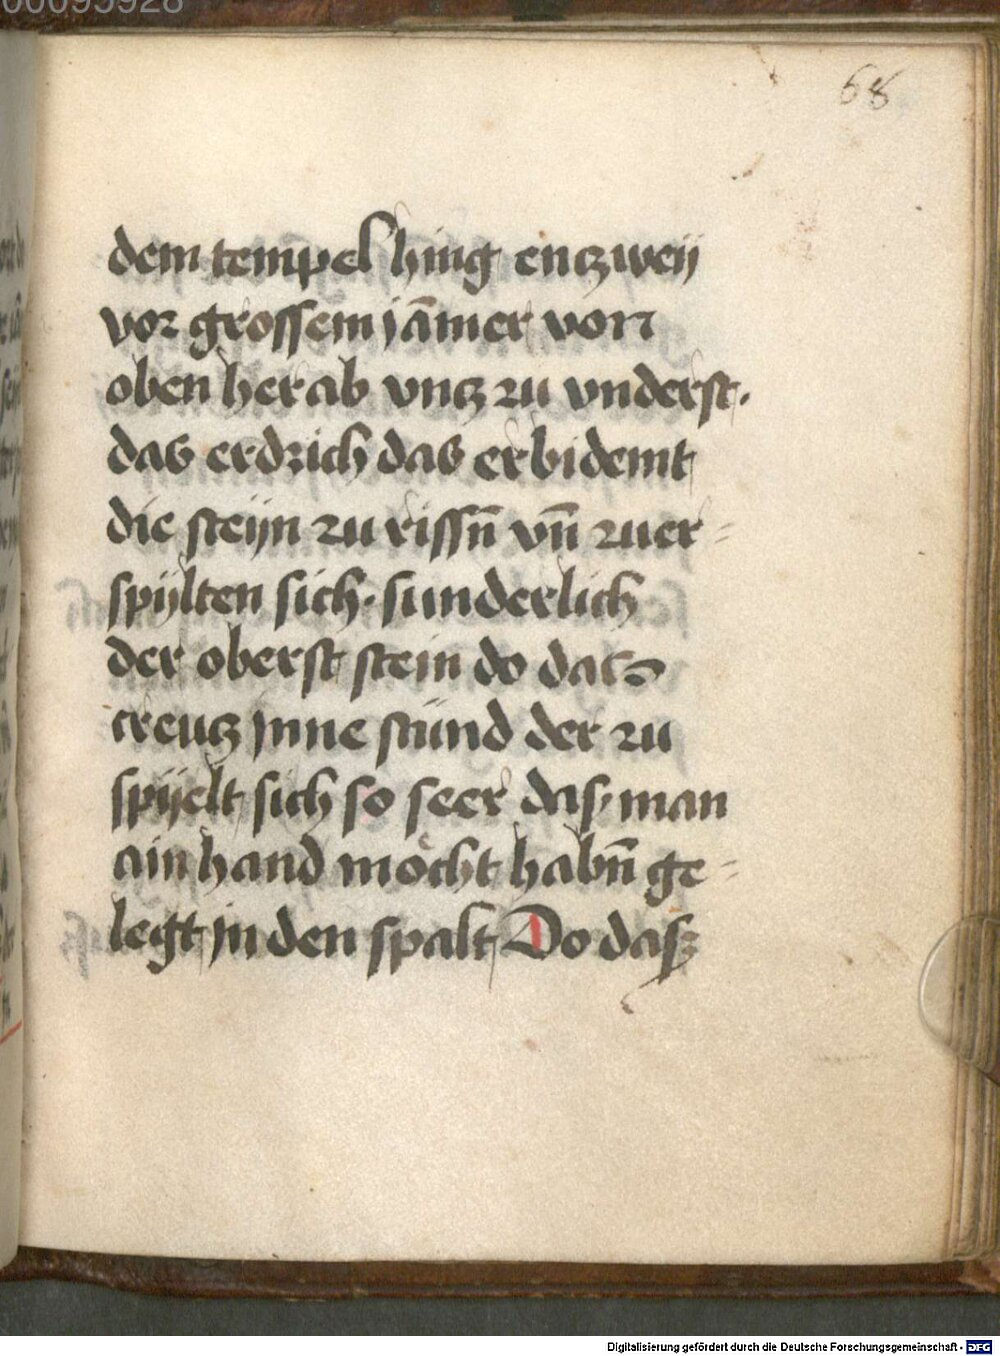 00095928
68
dem tempel hing entzweÿ
vor grossem jāmer von
oben her ab vntz zu vnderst.
das erdrich das erbidemt
die steÿn zu rissn̄ vn̄ zuer-
spÿlten sich. sunderlich
der oberst stein do das
creutz jnne stünd der zu
spÿelt sich so seer das man
ain hand möcht habn̄ ge-
legt in den spalt Do dasz
Digitalisierung gefördert durch die Deutsche Forschungsgemeinschaft - DFG